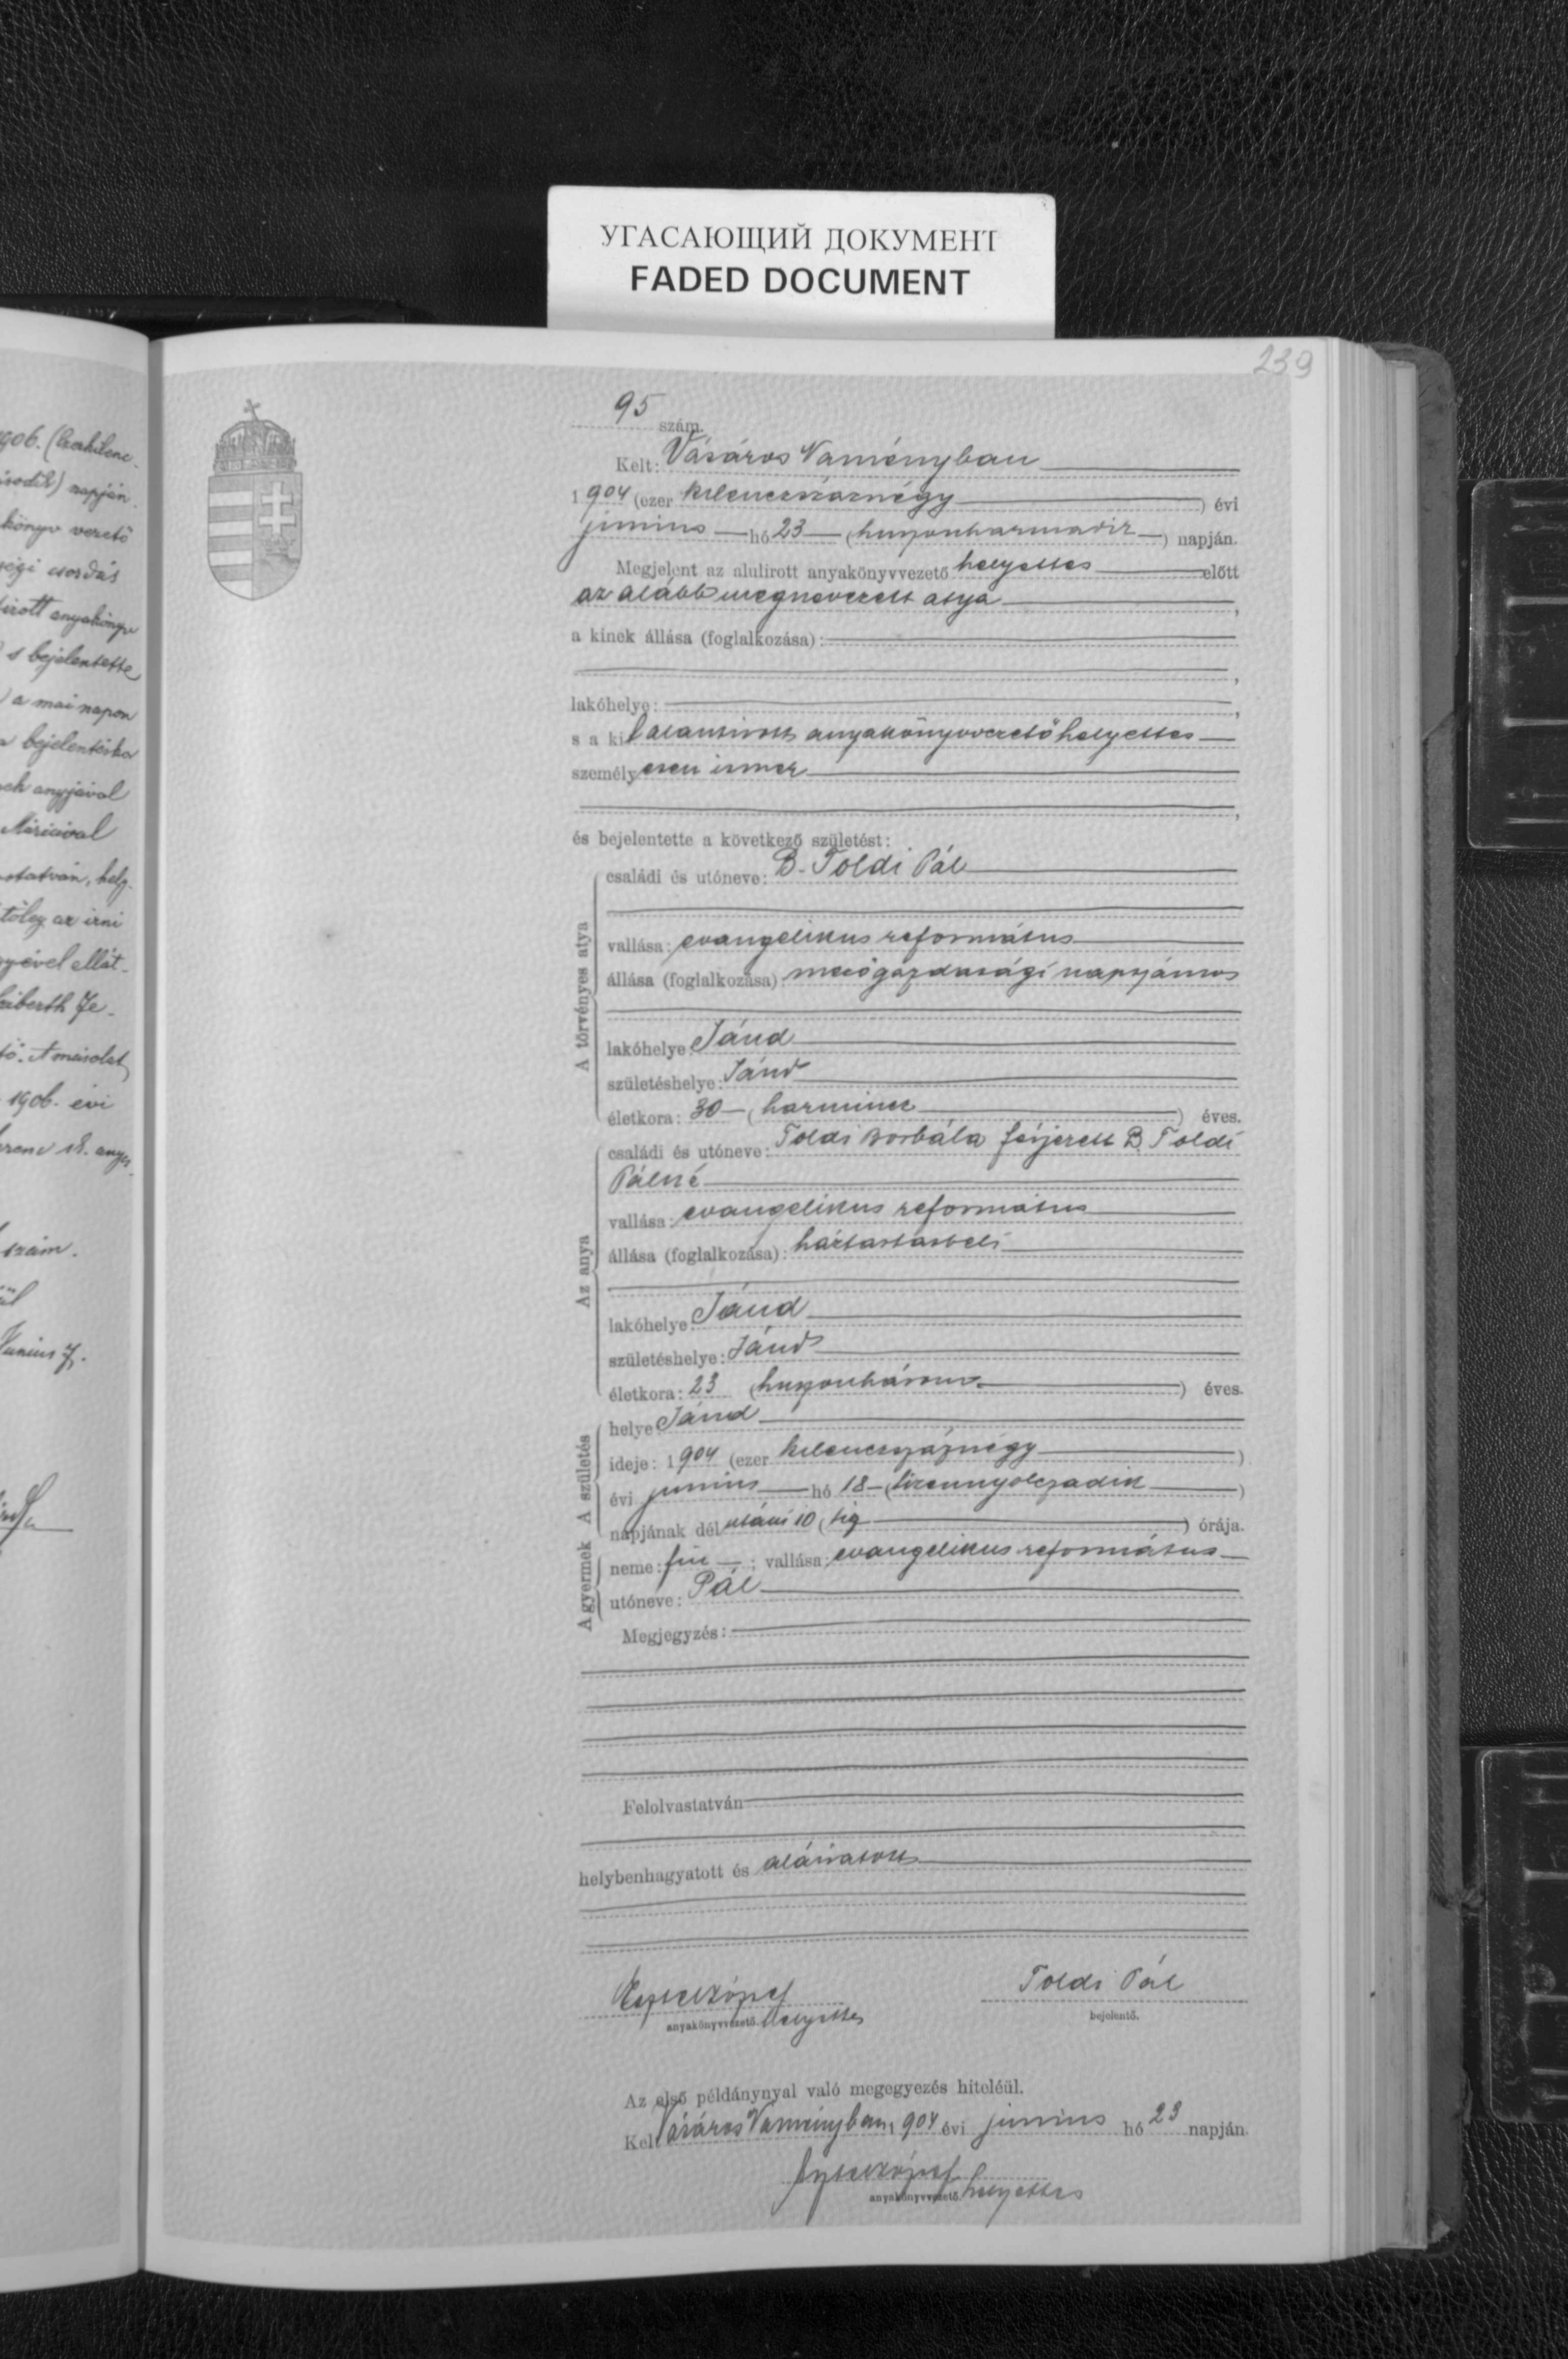 УГАСАЮЩИЙ ДОКУМЕНТ
FADED DOCUMENT
239
1906. (
) napján
könyv vezető
ségi csordás
anyakönyv
s bejelentette
a mai napon
a bejelentésbe
anyjával
Máriával
hely-
tőleg az irni
ellát-
Je-
A másolat
1906. évi
18.
szám.
Junius 7.
95 szám.
Kelt: Vásáros Naményban
1904 (ezer kilenczszáznégy) évi
junius hó 23 (huszonharmadik) napján.
Megjelent az alulirott anyakönyvvezető helyettes előtt
az alább megnevezett atya,
a kinek állása (foglalkozása):
,
lakóhelye: ,
s a kit alantirott anyakönyvvezető helyettes
személyesen ismer
,
és bejelentette a következő születést:
A törvényes atya
családi és utóneve: B. Toldi Pál
vallása: evangelikus református
állása (foglalkozása): mezőgazdasági napszámos
lakóhelye: Jánd
születéshelye: Jánd
életkora: 30 (harmincz) éves.
Az anya
családi és utóneve: Toldi Borbála férjezett B. Toldi
Pálné
vallása: evangelikus református
állása (foglalkozása): háztartásbeli
lakóhelye: Jánd
születéshelye: Jánd
életkora: 23 (huszonhárom) éves.
A születés
helye: Jánd
ideje: 1904 (ezer kilenczszáznégy)
évi junius hó 18 (tizennyolczadik)
napjának délutáni 10 (tiz) órája.
A gyermek
neme: fiu; vallása: evangelikus református
utóneve: Pál
Megjegyzés:
Felolvastatván
helybenhagyatott és aláiratott
anyakönyvvezető. helyettes
Toldi Pál
bejelentő.
Az első példánynyal való megegyezés hiteléül.
Kelt Vásáros Naményban 1904 évi junius hó 23 napján.
anyakönyvvezető. helyettes